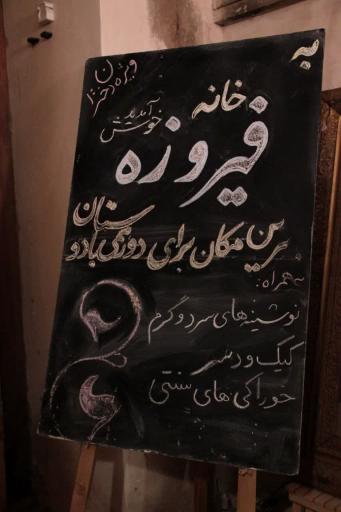 به
خانه
فیروزه
خوش آمدید
ویژه دختران
بهترین مکان برای دورهمی با دوستان
به همراه:
نوشینه های سرد و گرم
کیک و دسر
خوراکی های سنتی